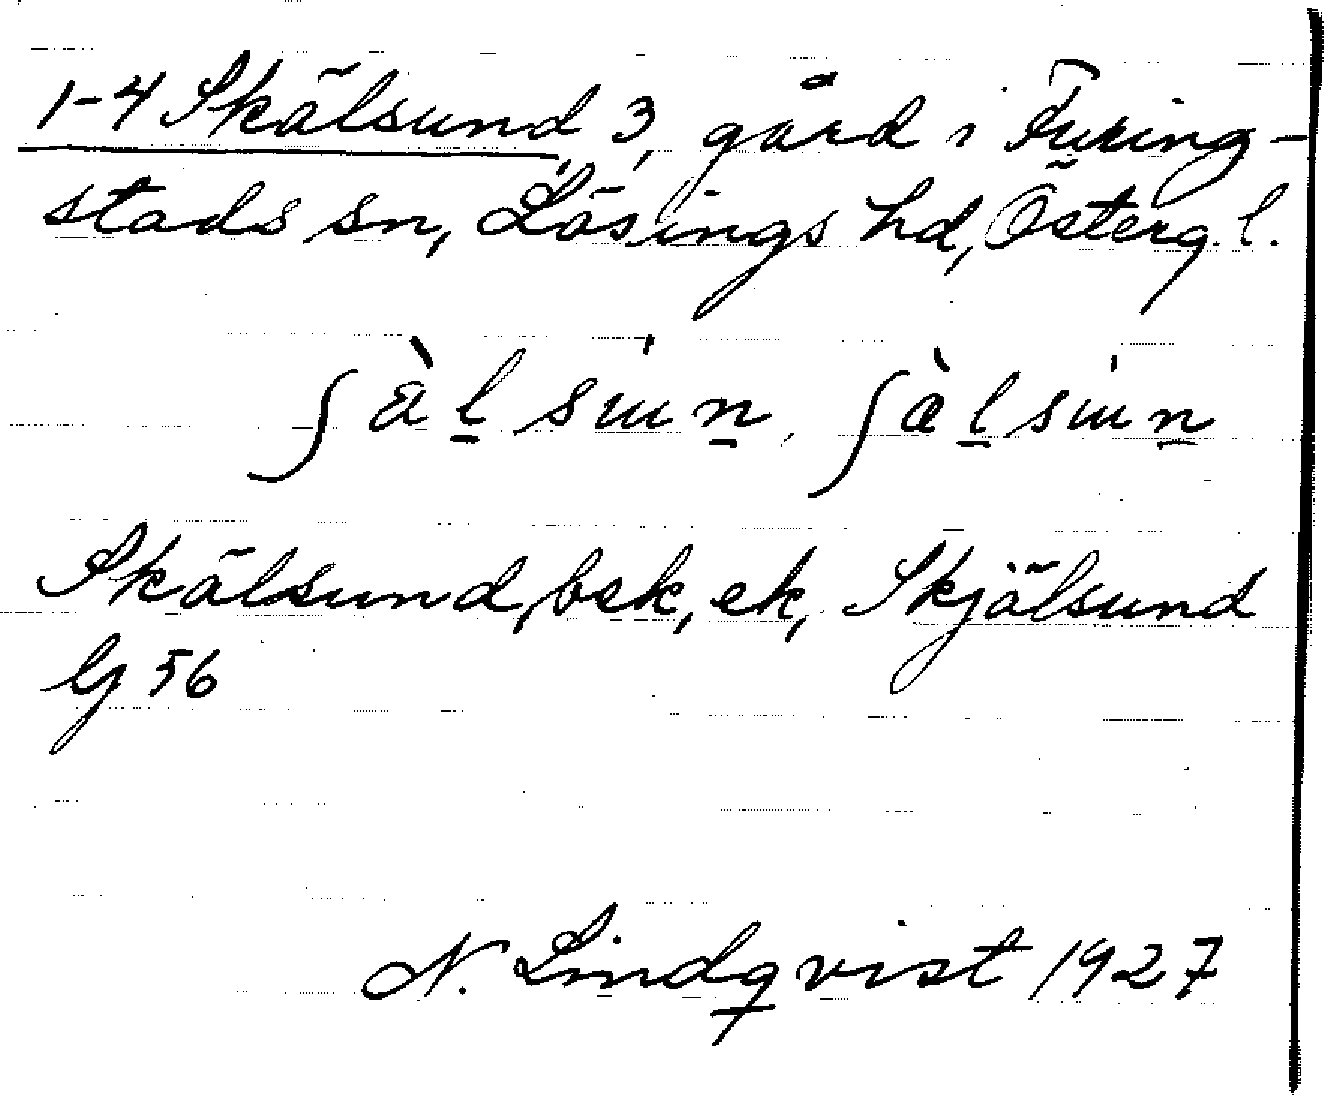 1-4 Skälsund, 3, gård i Furing-
stads sn, Lösings hd, Österg. l.
ʃàl̠sɯn̠, ʃàl̠sɯn̠
Skälsund, bek, ek, Skjälsund
Gj 56
N. Lindqvist 1927